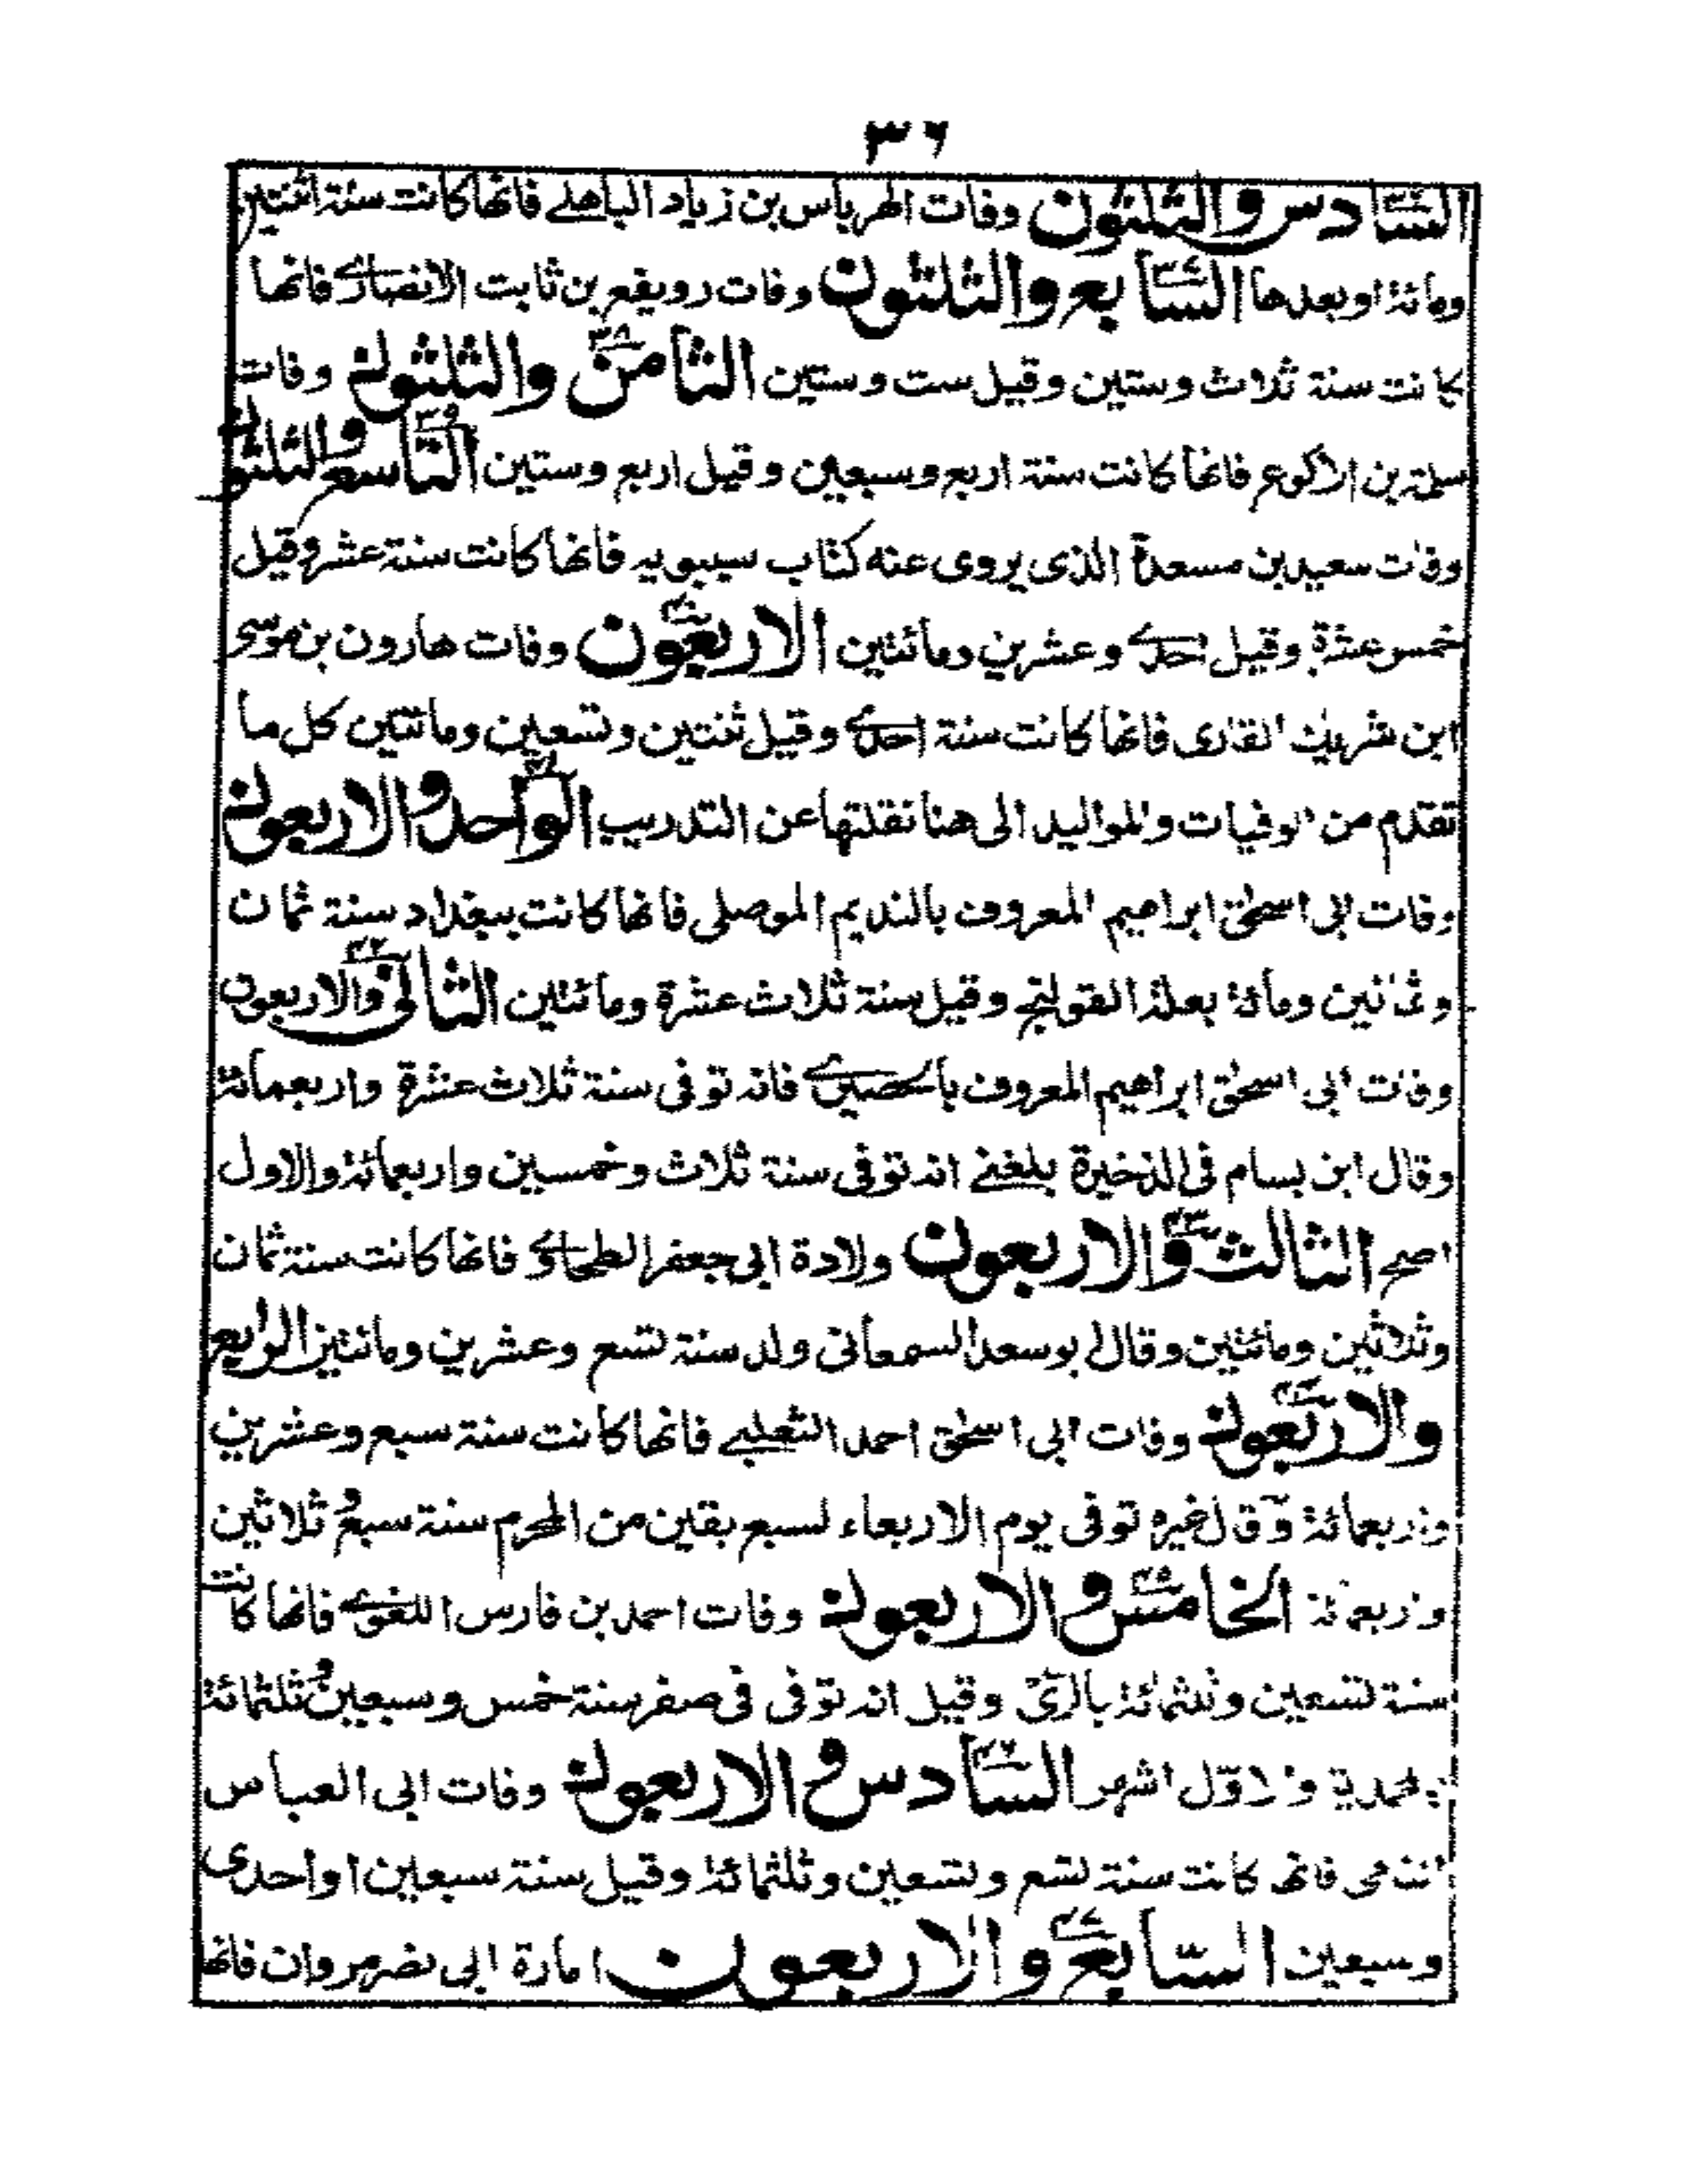 ٣٦
السادس والثلثون وفات الهرماس بن زياد الباهلے فانها كانت سنة اثنتين
ومائة او بعدها السابع والثلثون وفات رويفع بن ثابت الانصارے فانها
كانت سنة ثلاث وستين وقيل ست وستين الثامن والثلثون وفات
سلمة بن الاكوع فانها كانت سنة اربع وسبعين وقيل اربع وستين التاسع والثلثون
وفات سعيد بن مسعدة الذى يروى عنه كتاب سيبويه فانها كانت سنة عشر وقيل
خمس عشرة وقيل احدے وعشرين ومائتين الاربعون وفات هارون بن موسى
ابن شريك القارى فانها كانت سنة احدے وقيل ثنتين وتسعين ومائتين كل ما
تقدم من الوفيات والمواليد الى هنا نقلتها عن التدريب الواحد والاربعون
وفات ابى اسحٰق ابراهيم المعروف بالنديم الموصلى فانها كانت ببغداد سنة ثمان
وثمانين ومائة بعلة القولنج وقيل سنة ثلاث عشرة ومائتين الثانى والاربعون
وفات ابى اسحٰق ابراهيم المعروف بالحصيرے فانه توفى سنة ثلاث عشرة واربعمائة
وقال ابن بسام فى الذخيرة بلغنے انه توفى سنة ثلاث وخمسين واربعمائة والاول
اصح الثالث والاربعون ولادة ابى جعفر الطحاوے فانها كانت سنة ثمان
وثلاثين ومائتين وقال ابو سعد السمعانى ولد سنة تسع وعشرين ومائتين الرابع
والاربعون وفات ابى اسحٰق احمد الثعلبے فانها كانت سنة سبع وعشرين
واربعمائة وقال غيره توفى يوم الاربعاء لسبع بقين من المحرم سنة سبع وثلاثين
واربعمائة الخامس والاربعون وفات احمد بن فارس اللغوے فانها كانت
سنة تسعين وثلثمائة بالرى وقيل انه توفى فى صفر سنة خمس وسبعين وثلثمائة
بالمحمدية والاول اشهر السادس والاربعون وفات ابى العباس
النامى فانها كانت سنة تسع وتسعين وثلثمائة وقيل سنة سبعين او احدى
وسبعين السابع والاربعون امارة ابى نصر مروان فانها